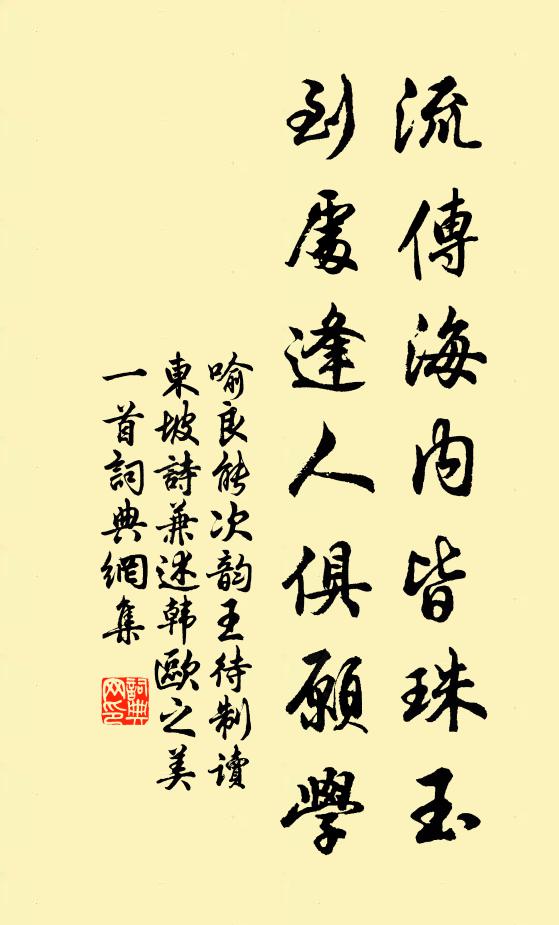 流傳海内皆珠玉
到處逢人俱願學
喻良能次韵王待制读
東坡詩兼述韩歐之美
一首詞典網集
詞典网印